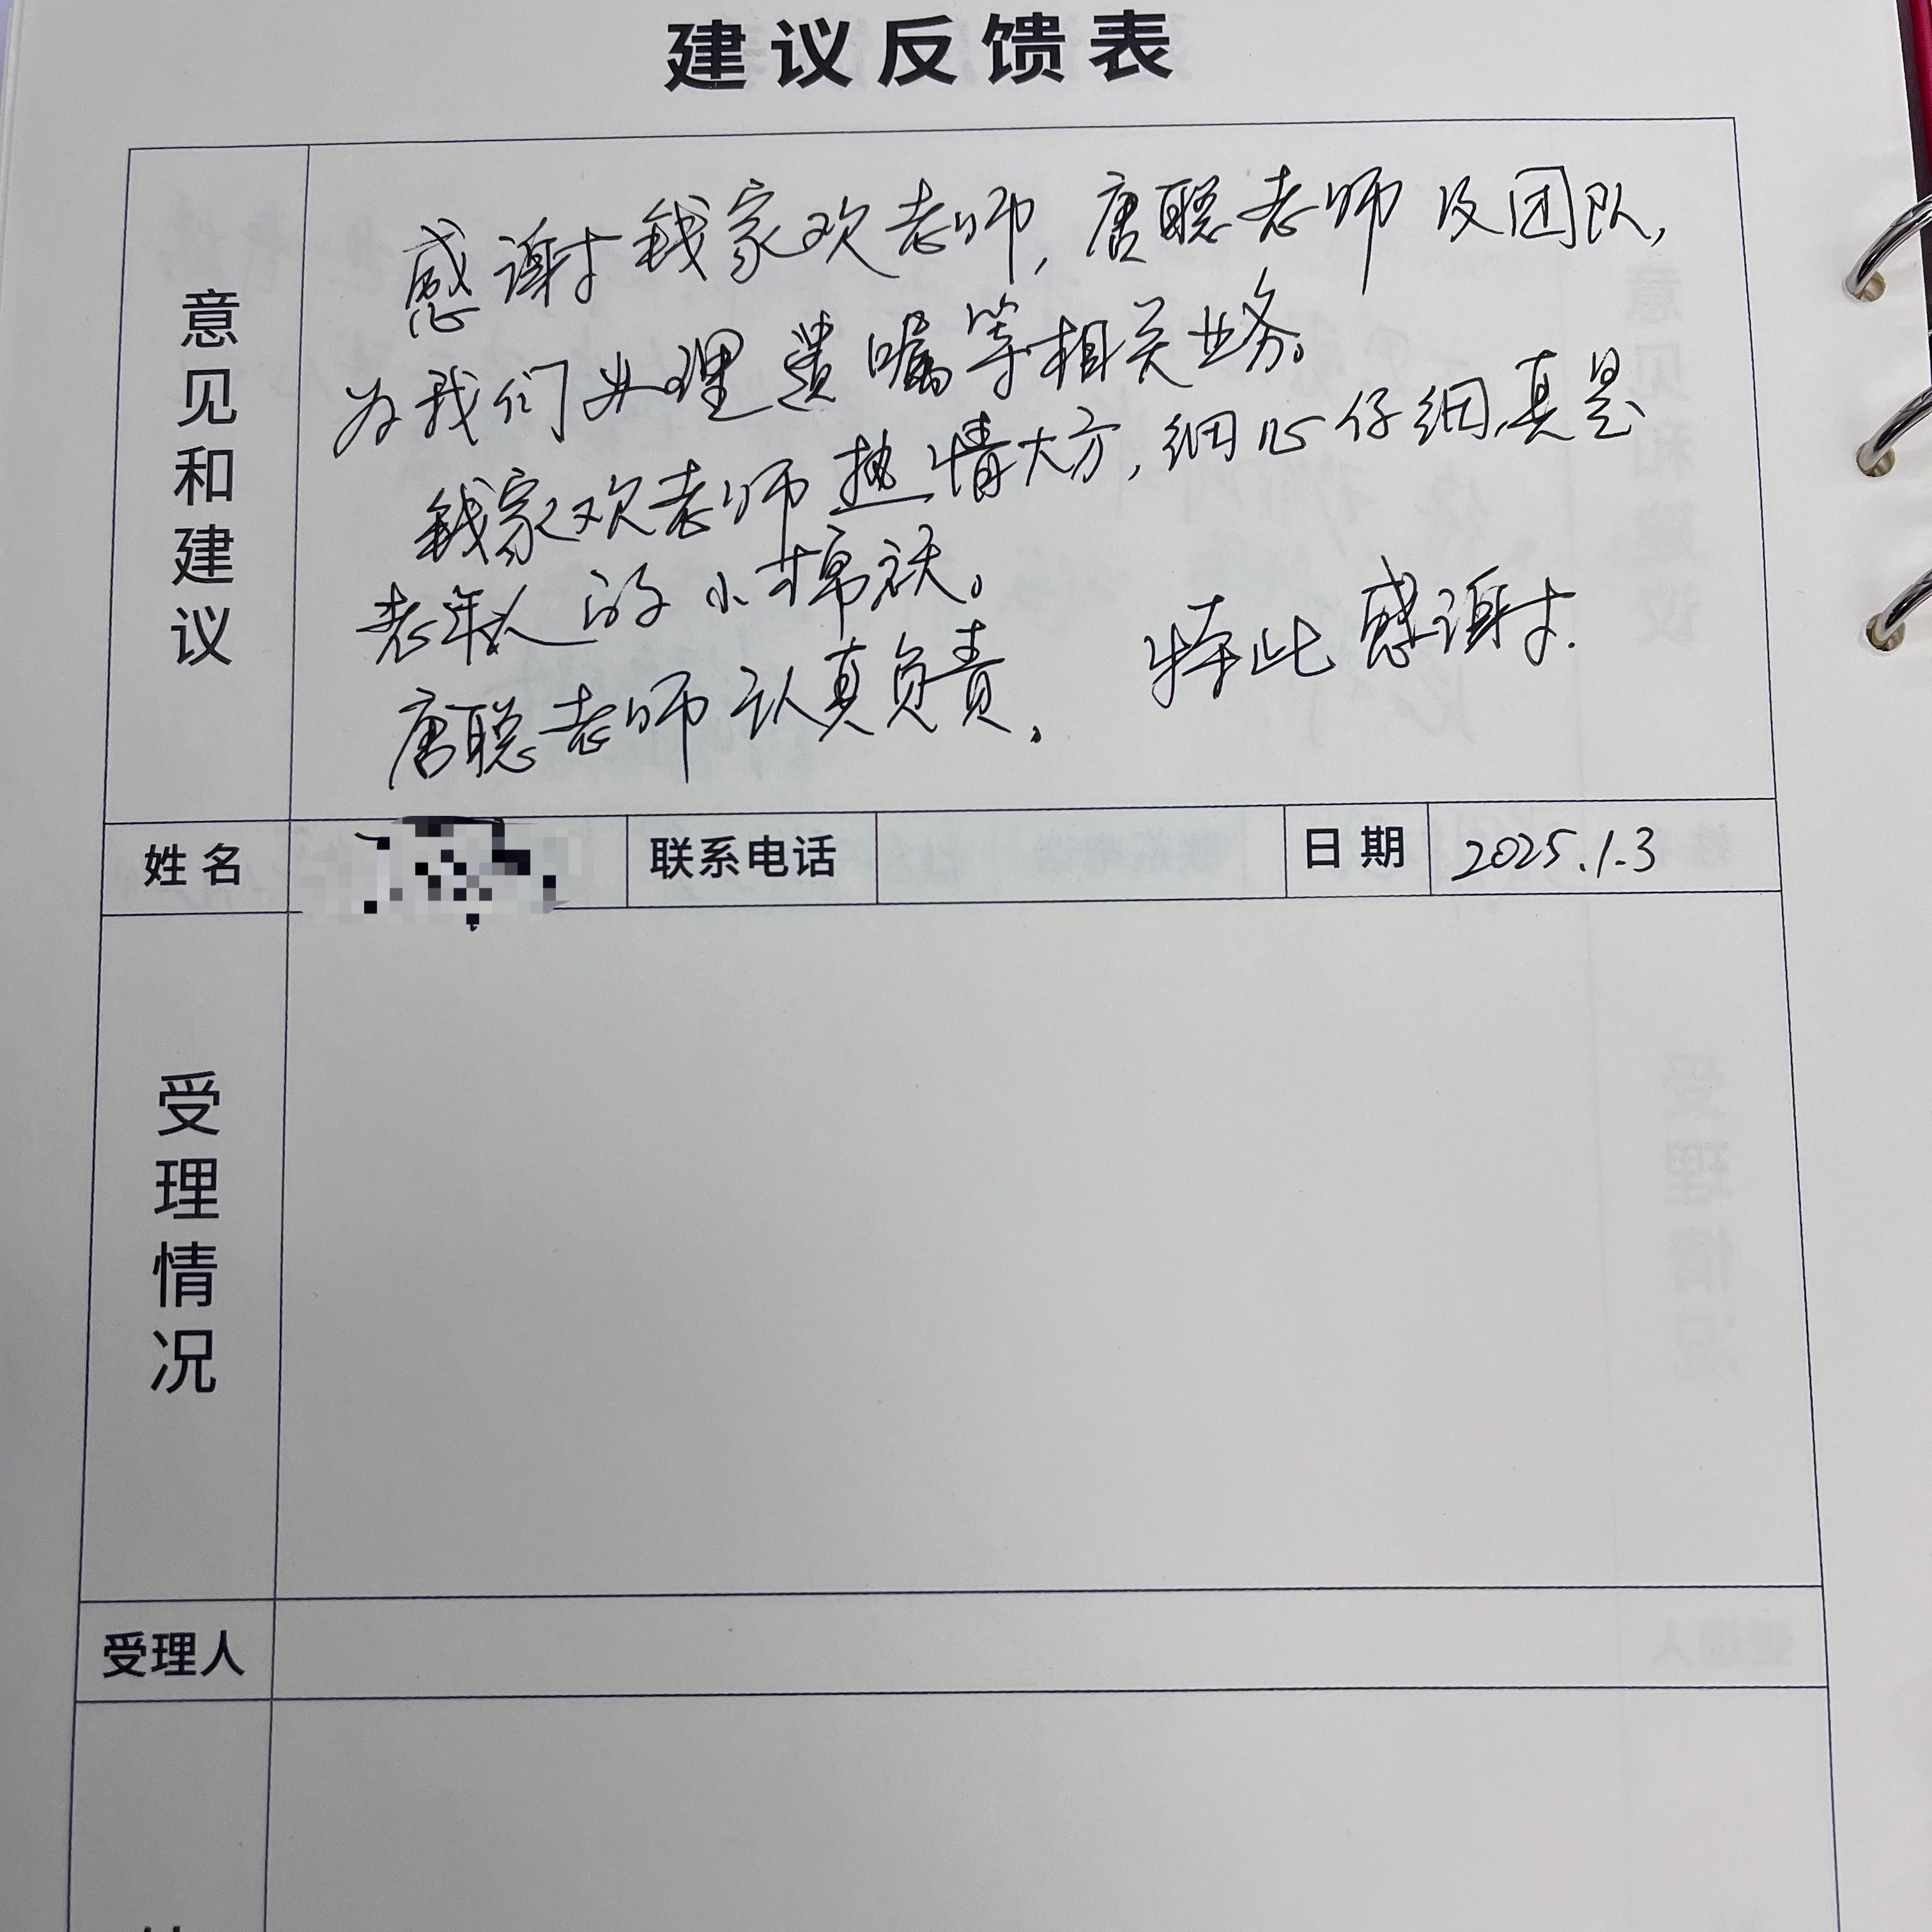 建议反馈表
意见和建议
感谢钱家欢老师,唐聪老师及团队,
为我们办理遗嘱等相关业务。
钱家欢老师热情大方,细心仔细,真是
老年人的小棉袄。
唐聪老师认真负责。 特此感谢.
姓名 联系电话 日期 2025.1.3
受理情况
受理人